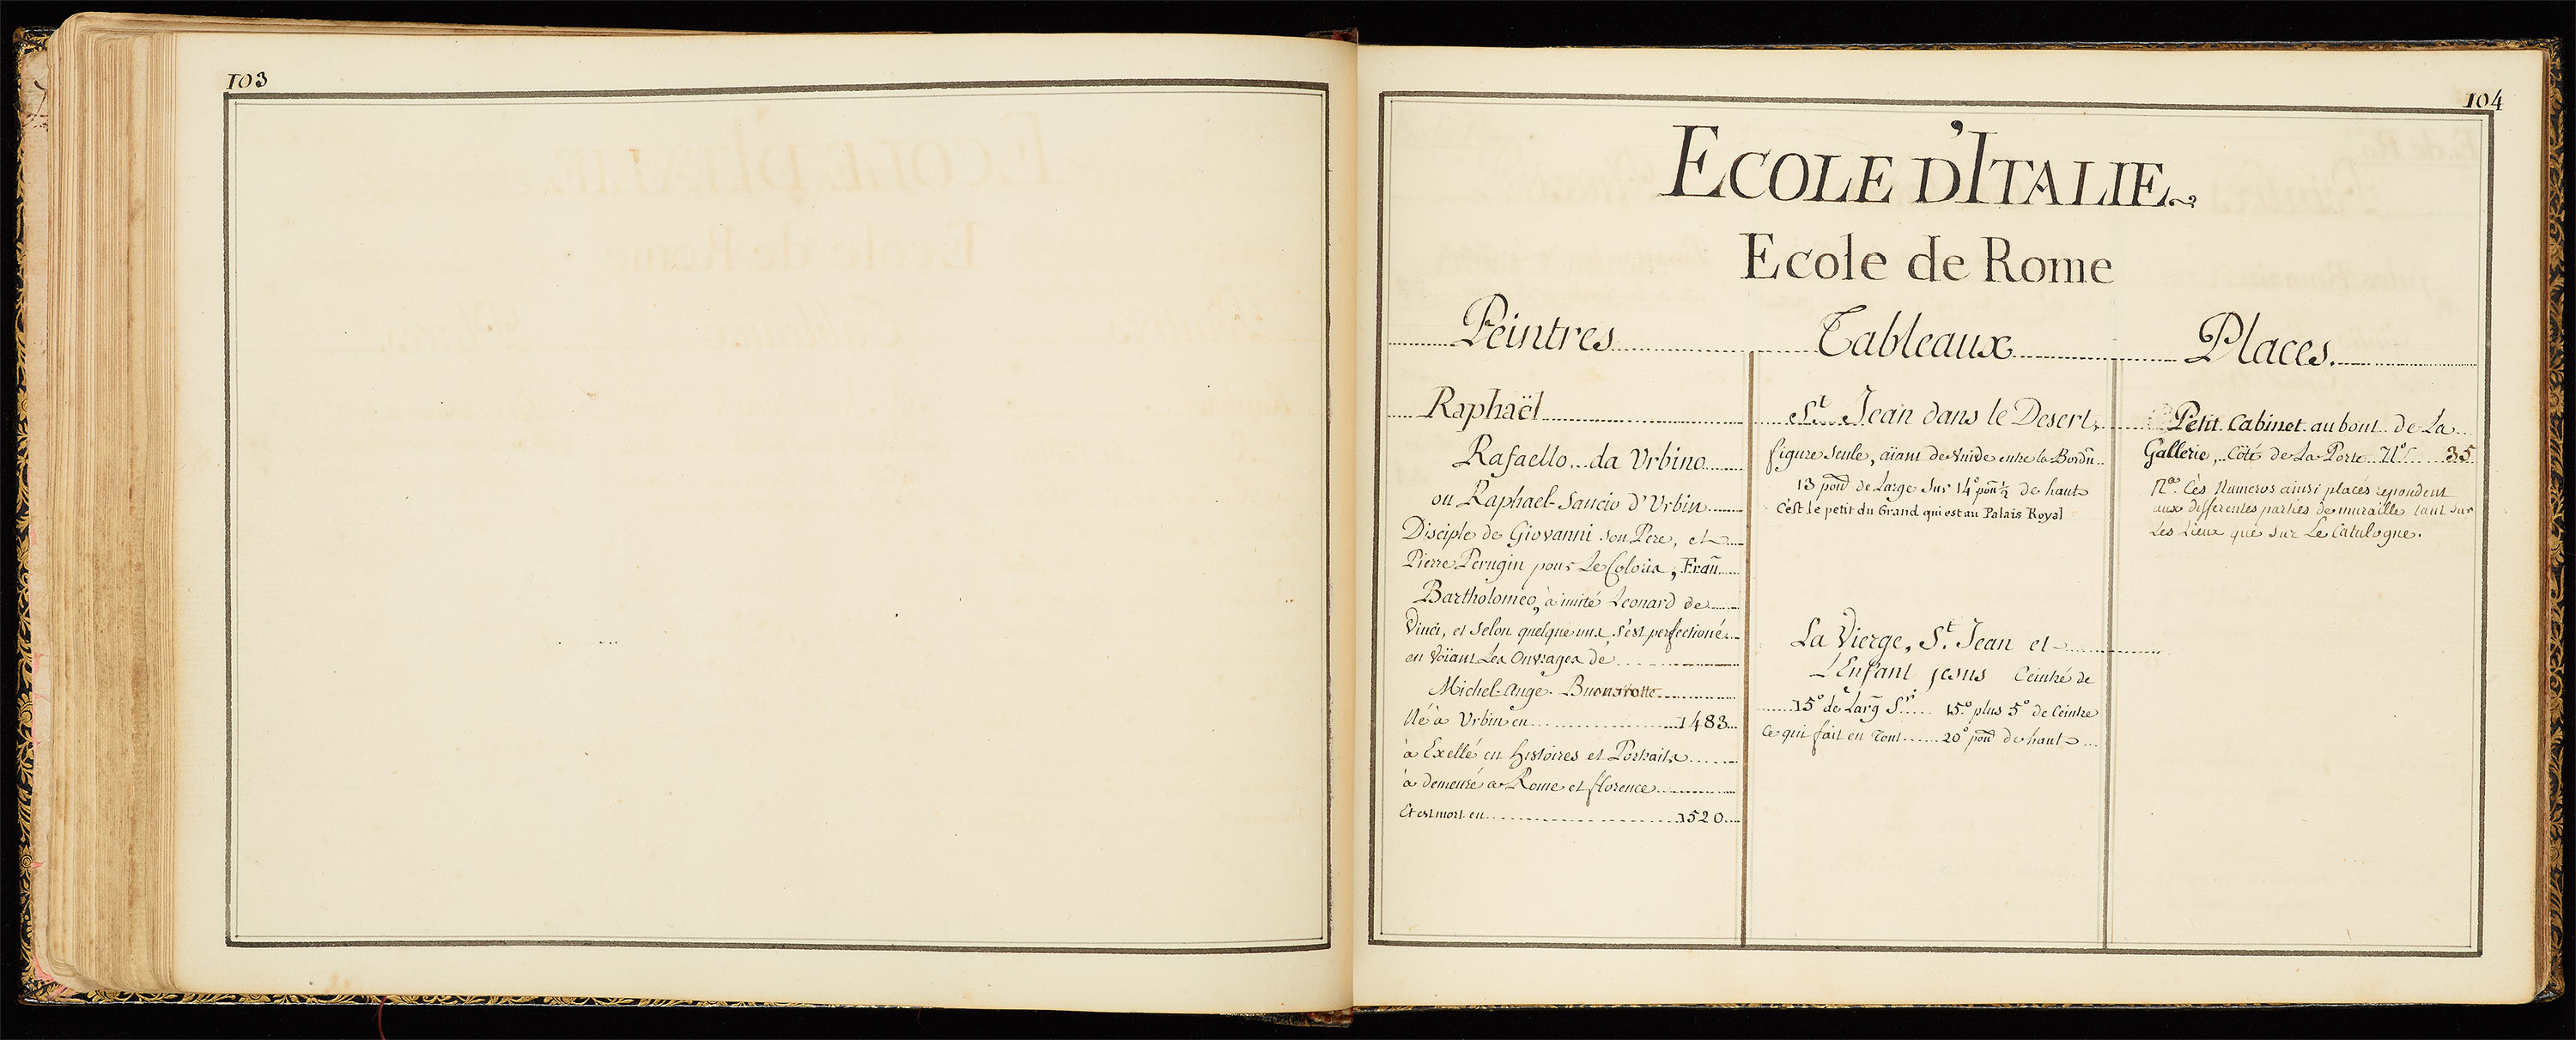 103
104
ECOLE D'ITALIE
Ecole de Rome
Peintres
Tableaux
Places.
Raphaël
Rafaello da Urbino
ou Raphael Sancio d'Urbin
Disciple de Giovanni son Pere, et
Pierre Perugin pour Le Coloris, Fran̄
Bartholomeo, à imité Leonard de
Vinci, et Selon quelque uns s'est perfectioné
en Voïant Les Ouvrages de
Michel-Ange. Buonarotte
Né à Urbin en 1483
à Exellé en Histoires et Portraits
à demeuré a Rome et florence
Et est mort en 1520
St. Jean dans le Desert,
figure Seule, aïant de Vuide entre la Bordu̅
13 pou̅ de Large Sur 14° pou̅ ½ de haut
C'est le petit du Grand qui est au Palais Royal
La Vierge, St. Jean et
L'Enfant jesus Ceintré de
15° de Larg̅ Sr. 15° plus 5° de Ceintre
Ce qui fait en Tout 20° pou̅ de haut
Petit Cabinet au bout de La
Gallerie, Côté de La Porte N° 35
Na. Ces Numeros ainsi placés repondent
aux differentes parties de muraille tant sur
Les Lieux que sur Le Catalogue.